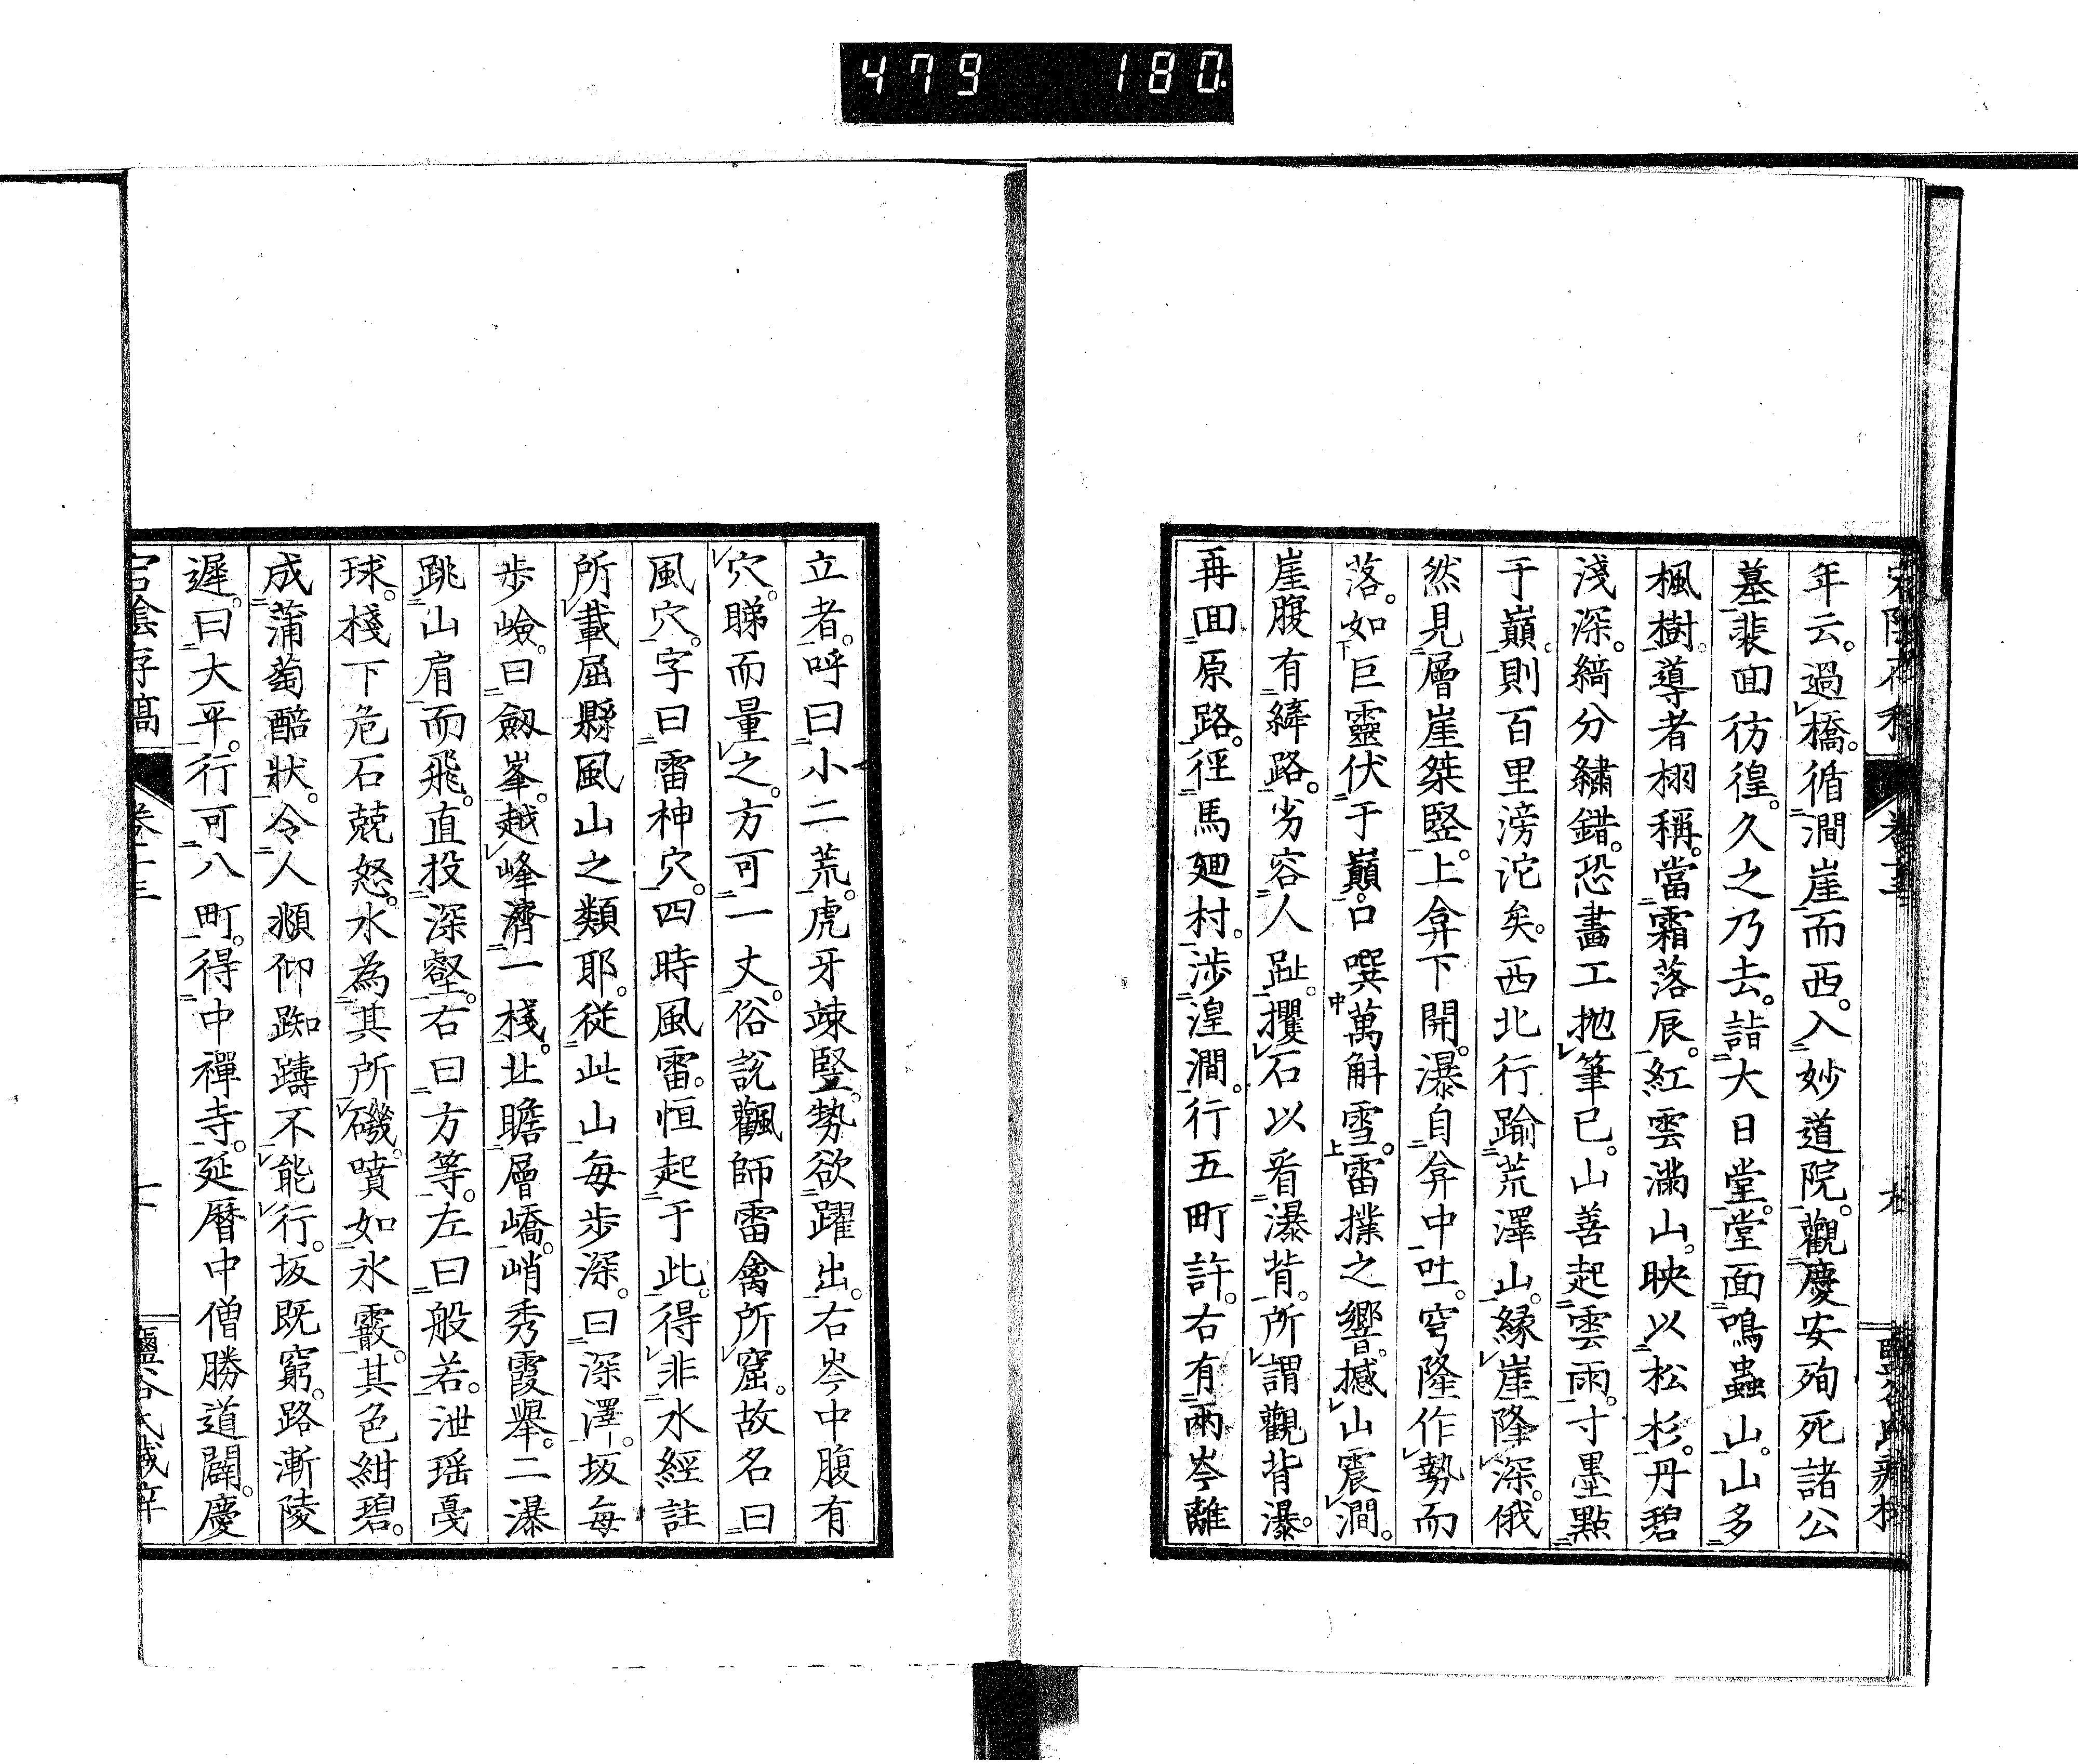 479 180
年云。過橋。循澗崖而西。入妙道院。觀慶安殉死諸公
墓。裴回彷徨。久之乃去。詣大日堂。堂面鳴蟲山。山多
楓樹。導者栩稱。當霜落辰。紅雲滿山。映以松杉。丹碧
淺深。綺分繡錯。恐畫工抛筆已。山善起雲雨。寸墨點
于巔。則百里滂沱矣。西北行踰荒澤山。緣崖隆深。俄
然見層崖桀竪。上弇下開。瀑自弇中吐。穹隆作勢而
落。如巨靈伏于巔。口噀萬斛雪。雷撲之響。撼山震澗。
崖腹有縴路。劣容人趾。攫石以看瀑背。所謂觀背瀑。
再回原路。徑馬廻村。涉湟澗。行五町許。右有兩岑離
立者。呼曰小二荒。虎牙竦竪。勢欲躍出。右岑中腹有
穴。睇而量之。方可一丈。俗說颿師雷禽所窟。故名曰
風穴。字曰雷神穴。四時風雷。恒起于此。得非水經註
所載屈縣風山之類耶。從此山每步深。曰深澤。坂每
步嶮。曰劔峯。越峰濟一棧。北瞻層嶠。峭秀霞舉。二瀑
跳山肩而飛。直投深壑。右曰方等。左曰般若。泄瑶戞
球。棧下危石兢怒。水為其所磯。噴如氷霰。其色紺碧。
成蒲萄醅狀。令人頫仰踟躊不能行。坂既窮。路漸陵
遲。曰大平。行可八町。得中禪寺。延曆中僧勝道闢。慶
宕陰存稿 卷十三